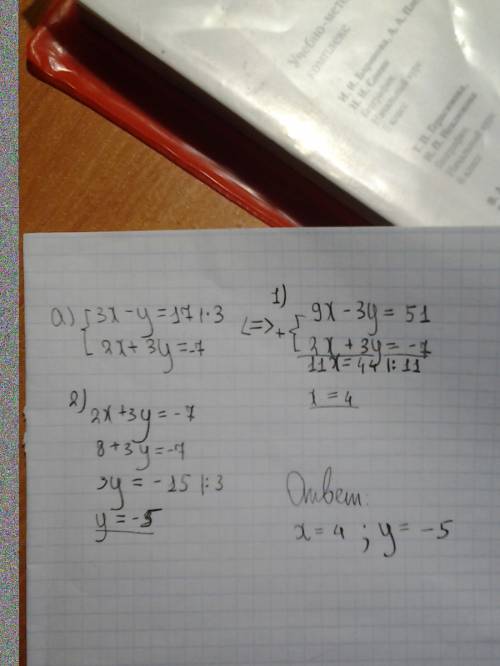 Учебно-мето
комплекс
а) { 3x - y = 17 | · 3
2x + 3y = -7
<=>
1)
+ { 9x - 3y = 51
2x + 3y = -7
11x = 44 | : 11
x = 4
2)
2x + 3y = -7
8 + 3y = -7
3y = -15 | : 3
y = -5
Ответ:
x = 4 ; y = -5